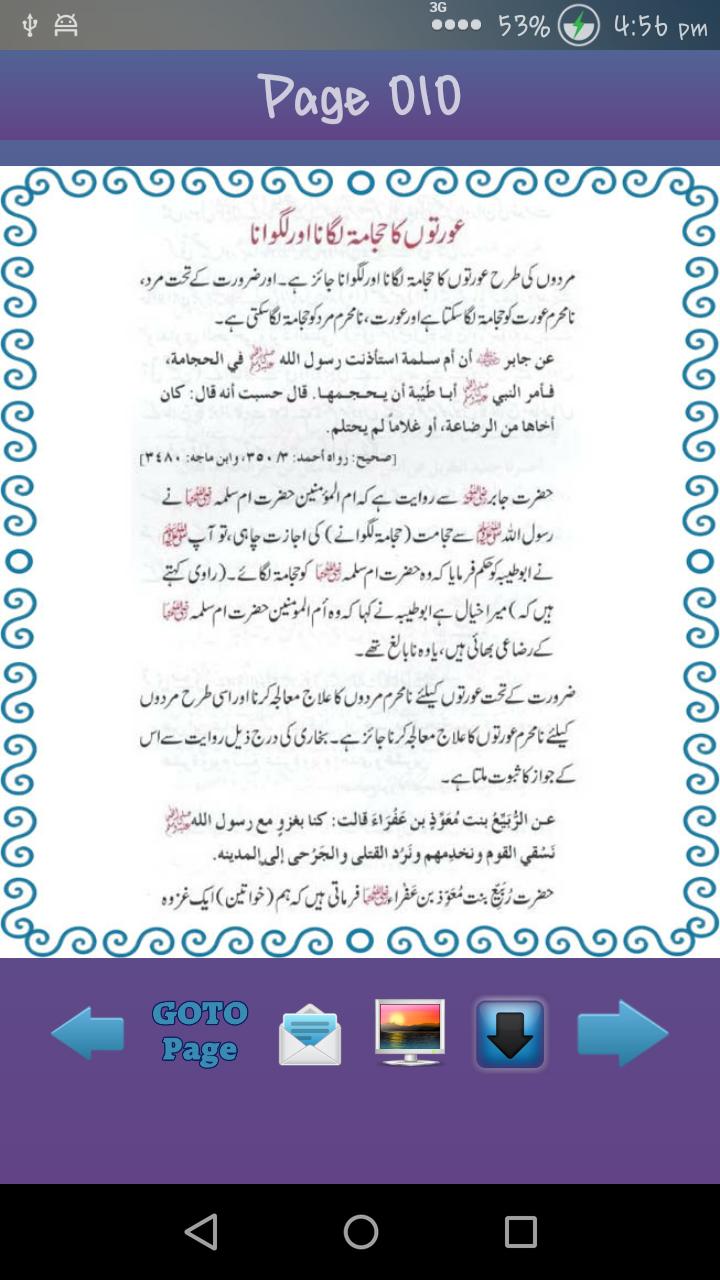 3G
53%
4:56 pm
Page 010
عورتوں کا حجامۃ لگانا اور لگوانا
مردوں کی طرح عورتوں کا حجامۃ لگانا اور لگوانا جائز ہے۔ اور ضرورت کے تحت مرد،
نامحرم عورت کو حجامۃ لگا سکتا ہے اور عورت، نامحرم مرد کو حجامۃ لگا سکتی ہے۔
عن جابر رضی اللہ عنہ أن أم سلمة استأذنت رسول الله ﷺ في الحجامة،
فأمر النبي ﷺ أبا طَيْبة أن يحجمها. قال حسبت أنه قال: كان
أخاها من الرضاعة، أو غلاماً لم يحتلم.
[صحيح: رواه أحمد: ٣/ ٣٥٠، وابن ماجه: ٣٤٨٠]
حضرت جابر رضی اللہ عنہ سے روایت ہے کہ ام المؤمنین حضرت ام سلمہ رضی اللہ عنہا نے
رسول اللہ ﷺ سے حجامت (حجامۃ لگوانے) کی اجازت چاہی، تو آپ ﷺ
نے ابوطیبہ کو حکم فرمایا کہ وہ حضرت ام سلمہ رضی اللہ عنہا کو حجامۃ لگائے۔ (راوی کہتے
ہیں کہ) میرا خیال ہے ابوطیبہ نے کہا کہ وہ أم المومنین حضرت ام سلمہ رضی اللہ عنہا
کے رضاعی بھائی ہیں، یا وہ نابالغ تھے۔
ضرورت کے تحت عورتوں کیلئے نامحرم مردوں کا علاج معالجہ کرنا اور اسی طرح مردوں
کیلئے نامحرم عورتوں کا علاج معالجہ کرنا جائز ہے۔ بخاری کی درج ذیل روایت سے اس
کے جواز کا ثبوت ملتا ہے۔
عن الرُّبَيِّعُ بنت مُعَوِّذٍ بن عَفْرَاءَ قالت: كنا بغزو مع رسول الله ﷺ
نَسْقي القوم ونخدمهم ونَرُد القتلى والجَرْحى إلى المدينه.
حضرت رُبَیِّع بنت مُعَوِّذ بن عَفْراء رضی اللہ عنہا فرماتی ہیں کہ ہم (خواتین) ایک غزوہ
GOTO
Page